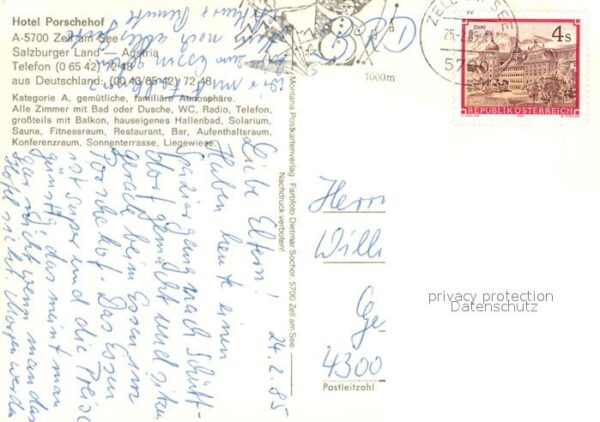 Hotel Porschehof
A-5700 Zell am See
Salzburger Land — Austria
Telefon (0 65 42) 72 48
aus Deutschland: (00 43/65 42) 72 48
Kategorie A, gemütliche, familiäre Atmosphäre.
Alle Zimmer mit Bad oder Dusche, WC, Radio, Telefon,
großteils mit Balkon, hauseigenes Hallenbad, Solarium,
Sauna, Fitnessraum, Restaurant, Bar, Aufenthaltsraum,
Konferenzraum, Sonnenterrasse, Liegewiese.
24.2.85
Liebe Eltern!
Haben heute einen
Spaziergang nach Schütt-
dorf gemacht und sitzen
gerade beim Essen im
Porschehof. Das Essen
ist super und die Preise
günstig, das meint man
gar nicht wenn man das
Hotel sieht. Morgen werden
Montana Postkartenverlag Farbfoto Dietmar Sochor, 5700 Zell am See
Nachdruck verboten!
BRD
1000m
ZELL AM SEE
5700
STAMS
4 S
REPUBLIK ÖSTERREICH
Herrn
Willi
Ge
4300
Postleitzahl
privacy protection
Datenschutz